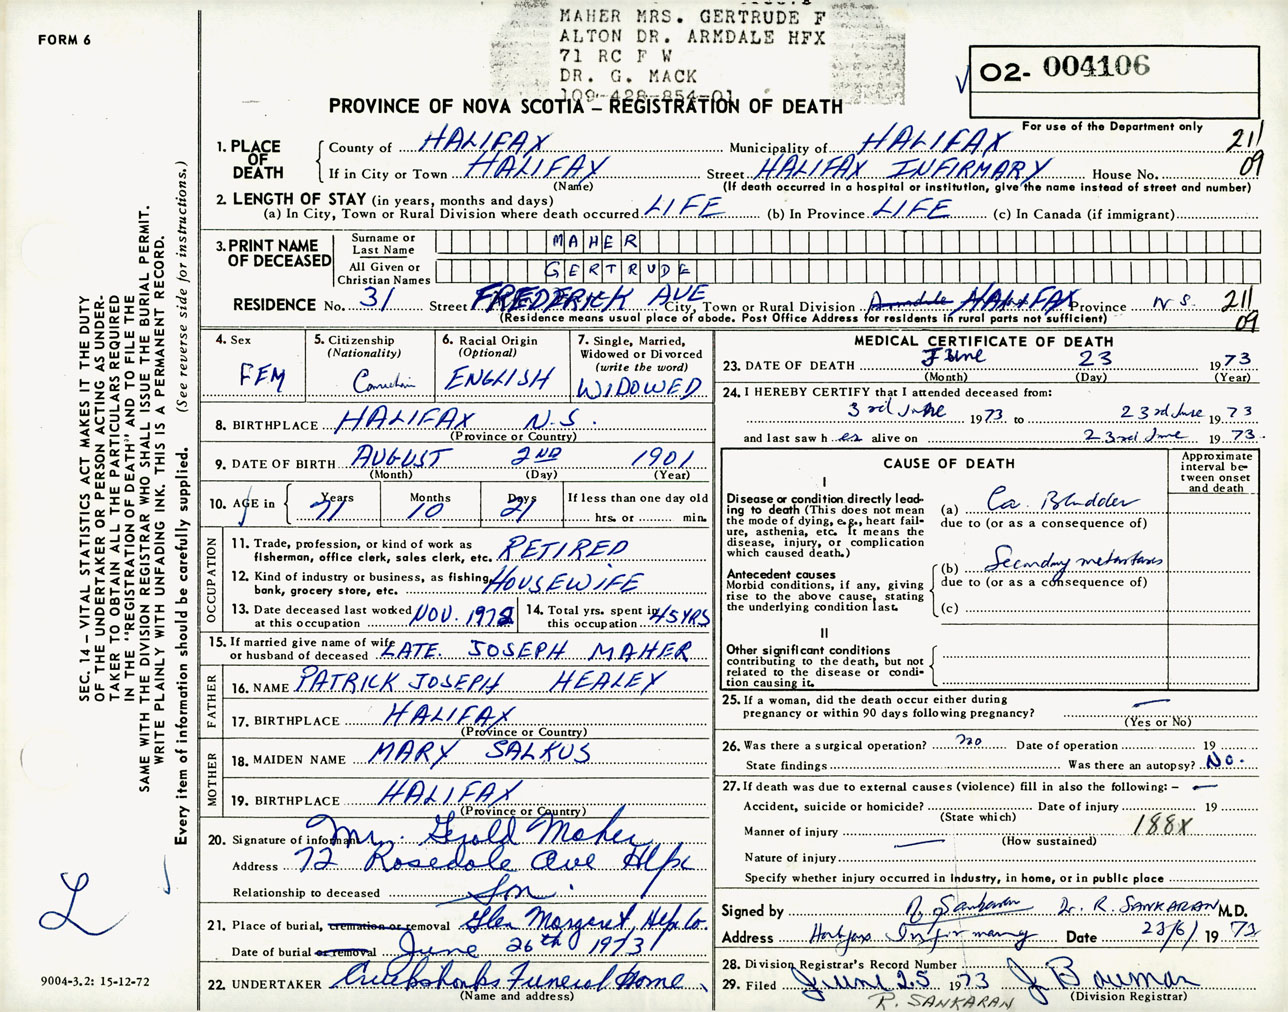 MAHER MRS. GERTRUDE F
ALTON DR. ARMDALE HFX
71 RC F W
DR. G. MACK
109-428-854-01
FORM 6
02- 004106
For use of the Department only
PROVINCE OF NOVA SCOTIA – REGISTRATION OF DEATH
211
09
1. PLACE OF DEATH
County of HALIFAX Municipality of HALIFAX
If in City or Town HALIFAX Street HALIFAX INFIRMARY House No.
(Name) (If death occurred in a hospital or institution, give the name instead of street and number)
2. LENGTH OF STAY (in years, months and days)
(a) In City, Town or Rural Division where death occurred LIFE (b) In Province LIFE (c) In Canada (if immigrant)
3. PRINT NAME OF DECEASED
Surname or Last Name MAHER
All Given or Christian Names GERTRUDE
RESIDENCE No. 31 Street FREDERICK AVE City, Town or Rural Division Armdale HALIFAX Province N.S. 211
09
(Residence means usual place of abode. Post Office Address for residents in rural parts not sufficient)
4. Sex
FEM
5. Citizenship
(Nationality)
Canadian
6. Racial Origin
(Optional)
ENGLISH
7. Single, Married,
Widowed or Divorced
(write the word)
WIDOWED
8. BIRTHPLACE HALIFAX N.S.
(Province or Country)
9. DATE OF BIRTH AUGUST 2ND 1901
(Month) (Day) (Year)
10. AGE in
Years 71
Months 10
Days 21
If less than one day old
hrs. or min.
OCCUPATION
11. Trade, profession, or kind of work as
fisherman, office clerk, sales clerk, etc. RETIRED
12. Kind of industry or business, as fishing,
bank, grocery store, etc. HOUSEWIFE
13. Date deceased last worked
at this occupation NOV. 1972
14. Total yrs. spent in
this occupation 45 YRS
15. If married give name of wife
or husband of deceased LATE. JOSEPH MAHER
FATHER
16. NAME PATRICK JOSEPH HEALEY
17. BIRTHPLACE HALIFAX
(Province or Country)
MOTHER
18. MAIDEN NAME MARY SALKUS
19. BIRTHPLACE HALIFAX
(Province or Country)
20. Signature of informant Mr. Gerald Maher
Address 72 Rosedale Ave Hlfx
Relationship to deceased Son.
21. Place of burial, cremation or removal Glen Margaret, Hfx Co.
Date of burial or removal June 26th 1973
22. UNDERTAKER Cruikshanks Funeral Home
(Name and address)
MEDICAL CERTIFICATE OF DEATH
23. DATE OF DEATH June 23 1973
(Month) (Day) (Year)
24. I HEREBY CERTIFY that I attended deceased from:
3rd June 1973 to 23rd June 1973
and last saw her alive on 23rd June 1973.
CAUSE OF DEATH
Approximate
interval be-
tween onset
and death
I
Disease or condition directly lead-
ing to death (This does not mean
the mode of dying, e.g., heart fail-
ure, asthenia, etc. It means the
disease, injury, or complication
which caused death.)
(a) Ca. Bladder
due to (or as a consequence of)
Antecedent causes
Morbid conditions, if any, giving
rise to the above cause, stating
the underlying condition last.
(b) Secondary metastases
due to (or as a consequence of)
(c)
II
Other significant conditions
contributing to the death, but not
related to the disease or condi-
tion causing it.
25. If a woman, did the death occur either during
pregnancy or within 90 days following pregnancy? —
(Yes or No)
26. Was there a surgical operation? no Date of operation 19
State findings Was there an autopsy? No.
27. If death was due to external causes (violence) fill in also the following:– —
Accident, suicide or homicide? Date of injury 19
(State which)
188X
Manner of injury —
(How sustained)
Nature of injury
Specify whether injury occurred in industry, in home, or in public place
Signed by R Sankaran Dr. R. SANKARAN M.D.
Address Halifax Infirmary Date 23/6/ 1973
28. Division Registrar's Record Number
29. Filed June 25 1973 J Bauman
(Division Registrar)
R. SANKARAN
SEC. 14 – VITAL STATISTICS ACT MAKES IT THE DUTY
OF THE UNDERTAKER OR PERSON ACTING AS UNDER-
TAKER TO OBTAIN ALL THE PARTICULARS REQUIRED
IN THE "REGISTRATION OF DEATH" AND TO FILE THE
SAME WITH THE DIVISION REGISTRAR WHO SHALL ISSUE THE BURIAL PERMIT.
WRITE PLAINLY WITH UNFADING INK. THIS IS A PERMANENT RECORD.
Every item of information should be carefully supplied. (See reverse side for instructions.)
L
9004-3.2: 15-12-72